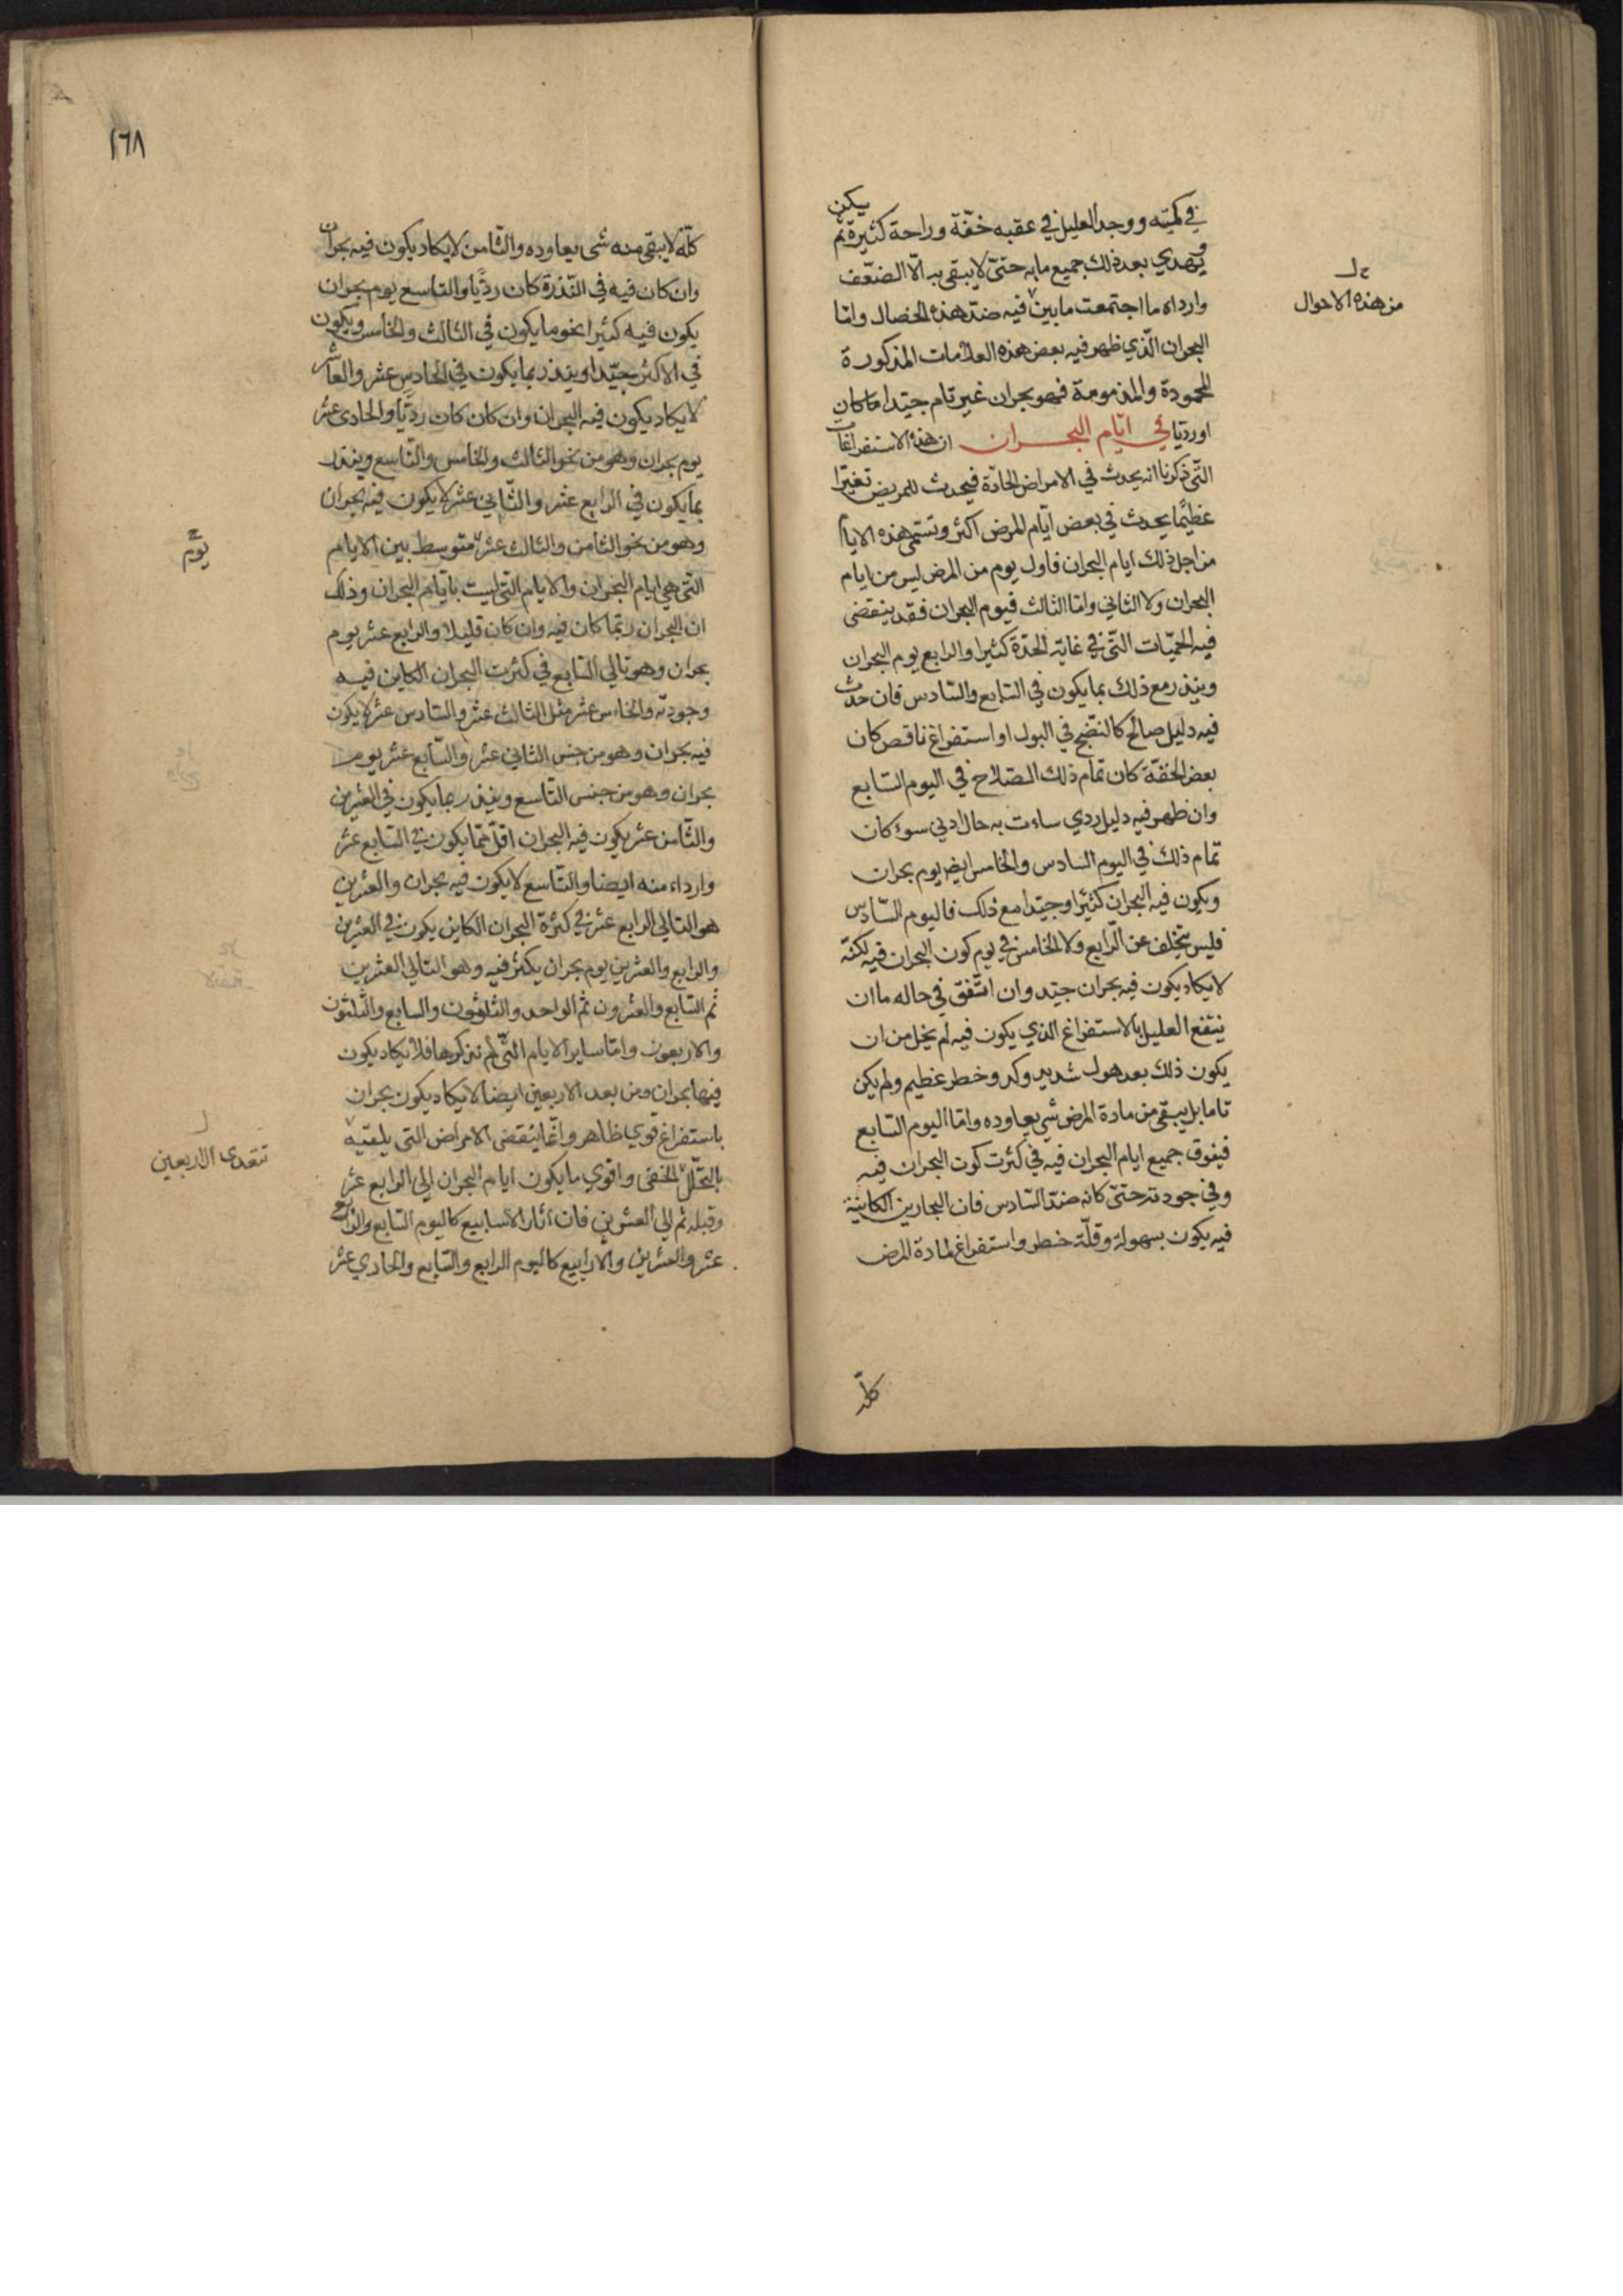 في كميته ووجد العليل في عقبه خفّة وراحة كثيرة ثم يكن
ويهدي بعد ذلك جميع ما به حتىّ لا يبقى به الّا الضعّف
وارداه ما اجتمعت ما بين فيه ضدّ هذه الخصال وامّا
من هذه الاحوال
البحران الّذي ظهر فيه بعض هذه العلامات المذكورة
المحمودة والمذمومة فهو بحران غير تام جيّدا ما كان
او رديّا في ايّام البحران ان هذه الاستفراغات
التّي ذكرنا انه يحدث في الامراض الحادّة فيحدث للمريض تغيّرا
عظيًما يحدث في بعض ايّام المرض اكثر وتسمّى هذه الايام
من اجل ذلك ايام البحران فاول يوم من المرض ليس من ايام
البحران ولا الثاني وامّا الثالث فيوم البحران فقد ينقضى
فيه الحميّات التّي في غاية الحدّة كثيرا والرابع يوم البحران
وينذر مع ذلك بما يكون في السّابع والسّادس فان حدث
فيه دليل صالح كالنضّج في البول او استفراغ ناقص كان
بعض الخفّة كان تمام ذلك الصّلاح في اليوم السّابع
وان ظهر فيه دليل ردي ساءت به حال ادنى سوء كان
تمام ذلك في اليوم السادس والخامس ايضا يوم بحران
ويكون فيه البحران كثيرًا وجيّدا مع ذلك فاليوم السّادس
فليس يتخلف عن الّرابع ولا الخامس في يوم كون البحران فيه لكنّه
لا يكاد يكون فيه بحران جيّد وان اتّفق في حاله ما ان
ينتفع العليل بالاستفراغ الذي يكون فيه لم يخل من ان
يكون ذلك بعد هول شديد وكد وخطر عظيم ولم يكن
تاما بل يبقى من مادة المرض شي يعاوده وامّا اليوم السّابع
فيفوق جميع ايام البحران فيه في كثرت كون البحران فيه
وفي جودته حتىّ كانه ضدّ السّادس فان البحارين الكاينة
فيه يكون بسهولة وقلّة خطر واستفراغ لمادة المرض
كلّه
١٦٨
كلّه لا يبقى منه شى يعاوده والثّامن لا يكاد يكون فيه بحران
وان كان فيه في النّدرة كان رديّا والتاسع يوم بحران
يكون فيه كثيرا نحو ما يكون في الثالث والخامس ويكون
في الاكثر جيّدا وينذر بما يكون في الحادي عشر والعاشر
لا يكاد يكون فيه البحران وان كان كان رديّا والحادى عشر
يوم بحران وهو من نحو الثالث والخامس والتّاسع وينذر
بما يكون في الرابع عشر والثّاني عشر لا يكون فيه بحران
وهو من نحو الثامن والثالث عشر متوسط بين الايام
يومٌ
التّي هي ايام البحران والايام التّي ليست بايّام البحران وذلك
ان البحران ربّما كان فيه وان كان قليلا والرابع عشر يوم
بحران وهو تالي السّابع في كثرت البحران الكاين فيه
وجودته والخامس عشر مثل الثالث عشر والسّادس عشر لا يكون
فيه بحران وهو من جنس الثاني عشر والسّابع عشر يوم
بحران وهو من جنس التاسع وينذر بما يكون في العشرين
والثّامن عشر يكون فيه البحران اقلّ ممّا يكون في السّابع عشر
وارداء منه ايضا والتّاسع لا يكون فيه بحران والعشرين
هو التالي الرابع عشر في كثرة البحران الكاين يكون في العشرين
والرابع والعشرين يوم بحران يكثر فيه وهو التالي العشرين
ثم السّابع والعشرون ثم الواحد والثلثون والسابع والثلثون
والاربعون وامّا ساير الايام التّي لم نذكرها فلا يكاد يكون
فيها بحران ومن بعد الاربعين ايضا لا يكاد يكون بحران
باستفراغ قوي ظاهر وانّما ينقضى الامراض التى
تتعدى الاربعين
بالتحّلل الخفى واقوي ما يكون ايام البحران الى الرابع عشر
وقبله ثم الى العشرين فان اثار الاسابيع كاليوم السّابع والرابع
عشر والعشرين والارابيع كاليوم الرابع والسّابع والحادي عشر